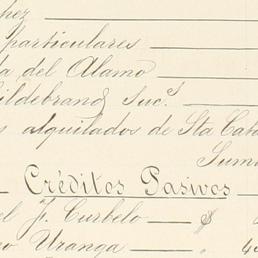 chez
particulares
a del Alamo
ildebrand Suc.s
s alquilados de Sta Cata
Suma
Créditos Pasivos
el J. Curbelo — $
o Uranga — "